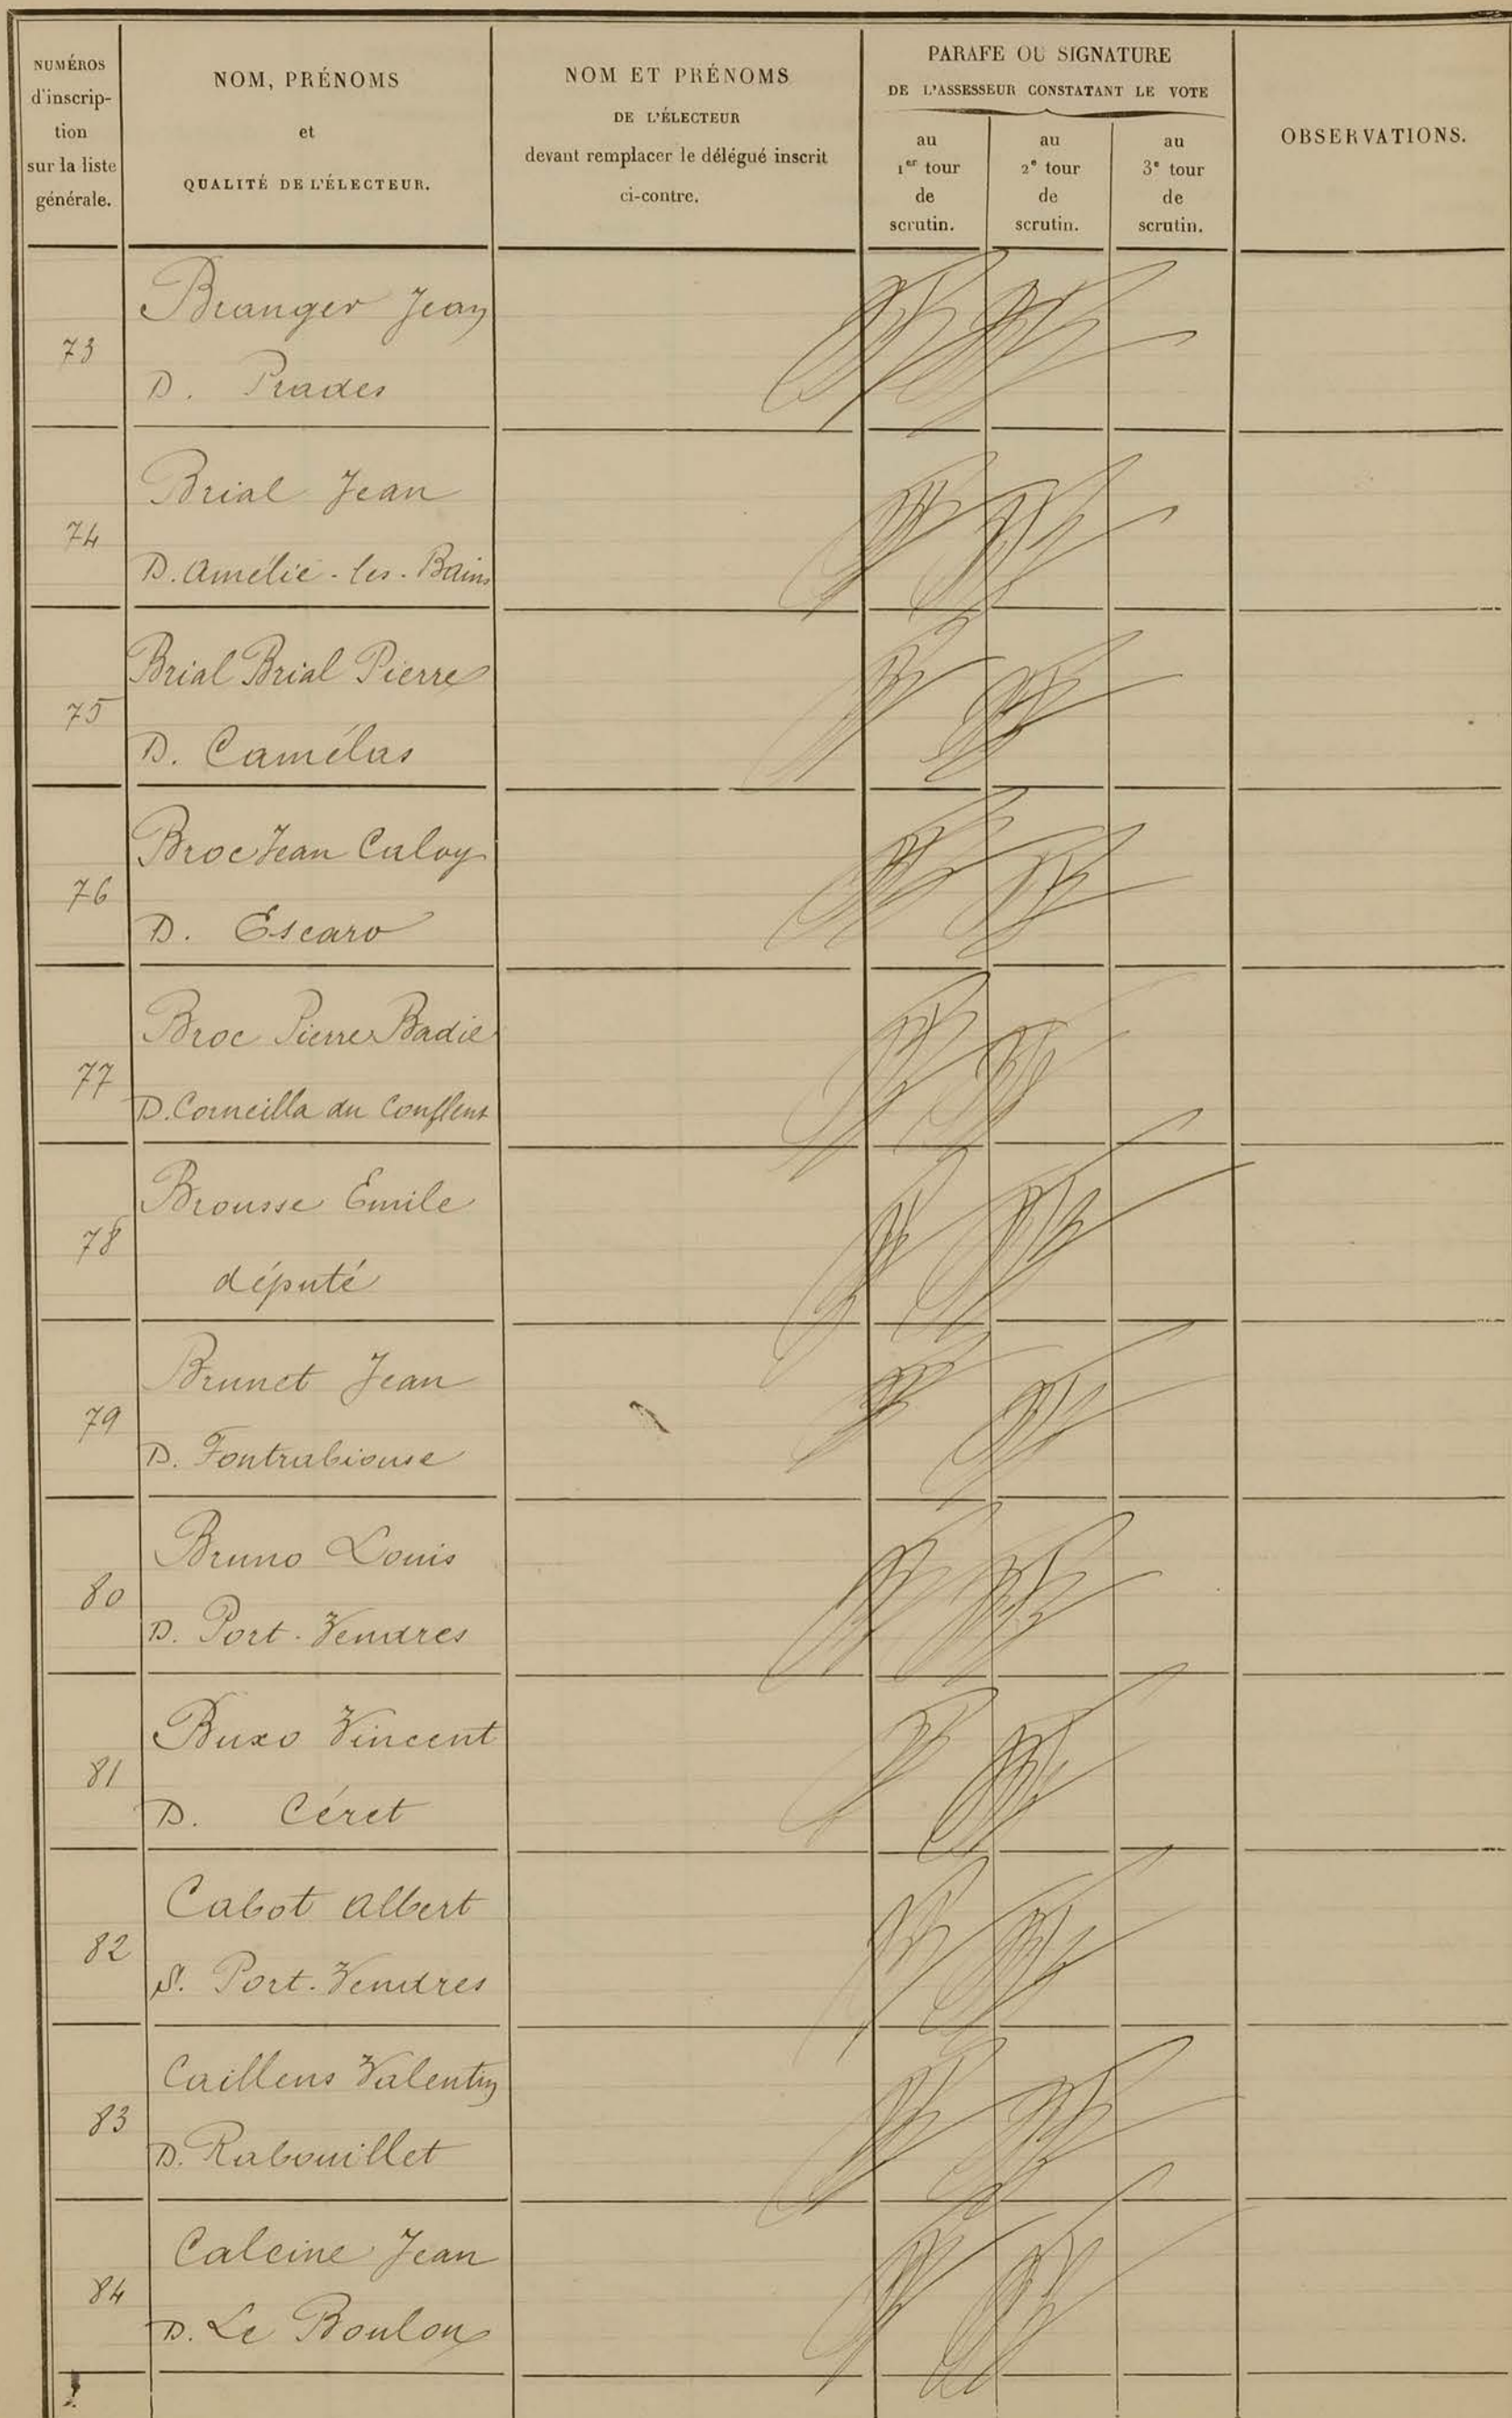 NUMÉROS
d'inscrip-
tion
sur la liste
générale.
NOM, PRÉNOMS
et
QUALITÉ DE L'ÉLECTEUR.
NOM ET PRÉNOMS
DE L'ÉLECTEUR
devant remplacer le délégué inscrit
ci-contre.
PARAFE OU SIGNATURE
DE L'ASSESSEUR CONSTATANT LE VOTE
au
1er tour
de
scrutin.
au
2e tour
de
scrutin.
au
3e tour
de
scrutin.
OBSERVATIONS.
73
Branger Jean
D. Prades
74
Brial Jean
D. Amélie-les-Bains
75
Brial Brial Pierre
D. Camélas
76
Broc Jean Calvy
D. Escaro
77
Broc Pierre Badie
D. Corneilla du Conflent
78
Brousse Emile
député
79
Brunet Jean
D. Fontrabiouse
80
Bruno Louis
D. Port-Vendres
81
Buxo Vincent
D. Céret
82
Cabot Albert
S. Port-Vendres
83
Caillens Valentin
D. Rabouillet
84
Calcine Jean
D. Le Boulou